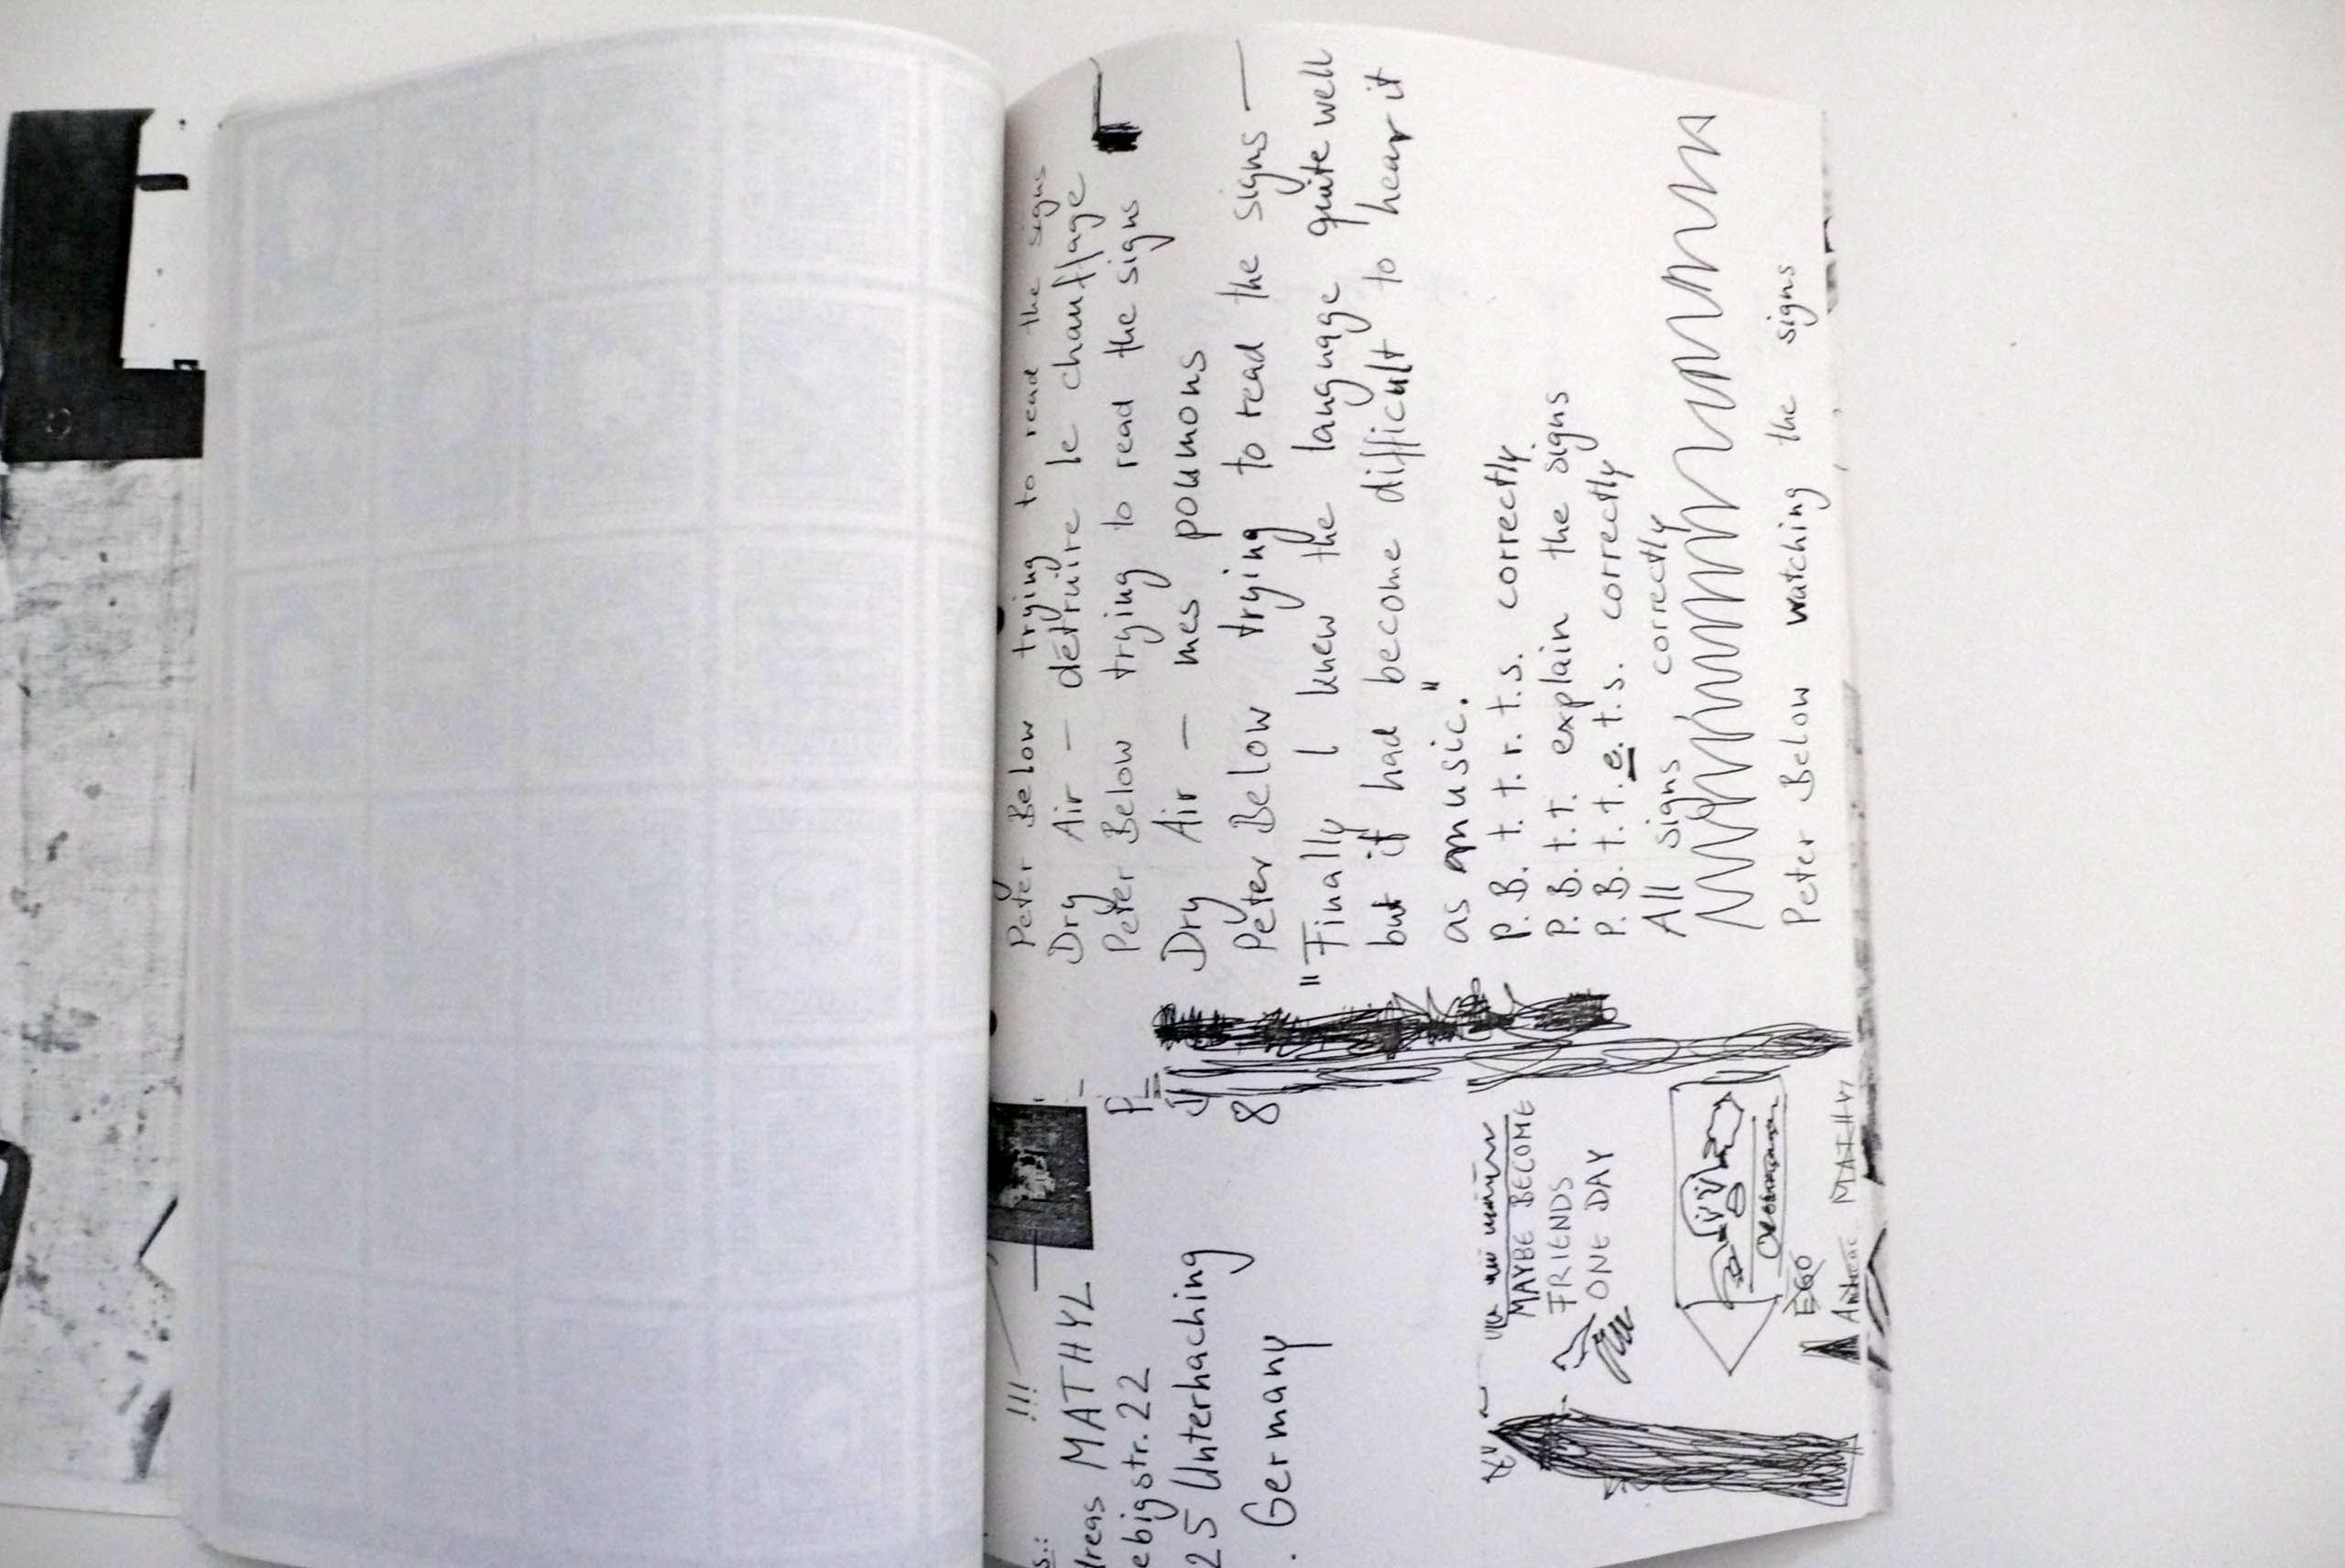 Peter Below trying to read the signs
Dry Air — détruire le chauffage
Peter Below trying to read the signs
Dry Air — mes poumons
Peter Below trying to read the signs —
"Finally I knew the language quite well
but it had become difficult to hear it
as music."
P. B. t. t. r. t. s. correctly.
P. B. t. t. explain the signs
P. B. t. t. e. t. s. correctly
All signs correctly
Peter Below watching the signs
!!!
s.:
dreas MATHYL
ebigstr. 22
25 Unterhaching
. Germany
P
8
MAYBE BECOME
FRIENDS
ONE DAY
EGO